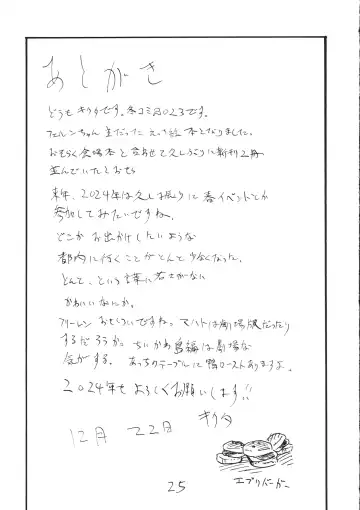 あとがき
どうもキクタです。冬コミ2023です。
フェルンちゃん主だった 本となりました。
おそらく 本と合わせて久しぶりに新刊2冊
並んでいたとおもう
来年、2024年は久し振りに春イベントとか
参加してみたいですね。
どこかお出かけしたいような
都内に行くことがとんと少なくなった。
とんと、という言葉に若さがない
かわいいなにか。
フリーレンおもしろいですね。マハトは劇場版だったり
するだろうか。ちいかわ島編は劇場な
気がする。あっちのテーブルに鴨ローストありますよ。
2024年もよろしくお願いします!!
キクタ
12月 22日
エブリバーガー
25